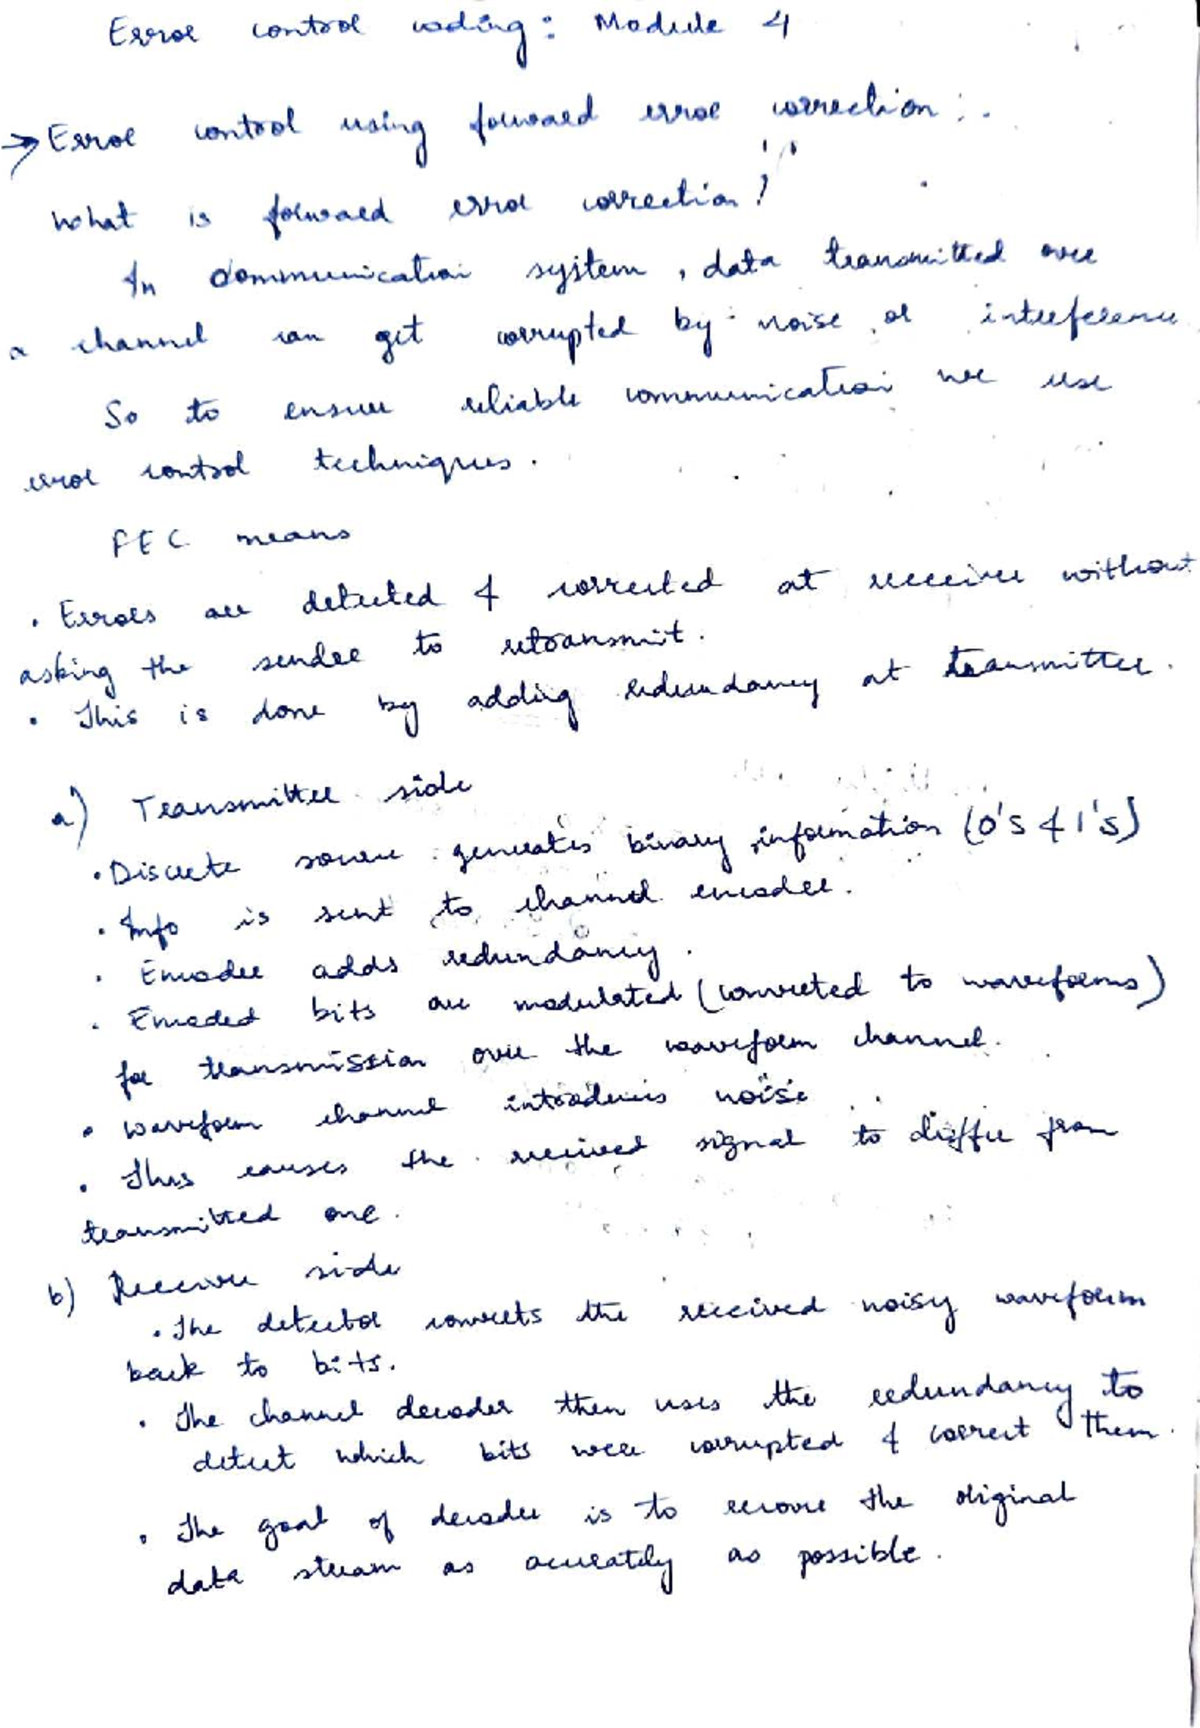 Error control coding: Module 4
→ Error control using forward error correction :.
What is forward error correction?
In communication system, data transmitted over
a channel can get corrupted by noise or interference
So to ensure reliable communication we use
error control techniques.
FEC means
• Errors are detected & corrected at receiver without
asking the sender to retransmit.
• This is done by adding redundancy at transmitter.
a) Transmitter side
• Discrete source generates binary information (0's & 1's)
• Info is sent to channel encoder.
• Encoder adds redundancy.
• Encoded bits are modulated (converted to waveforms)
for transmission over the waveform channel.
• Waveform channel introduces noise
• This causes the received signal to differ from
transmitted one.
b) Receiver side
• The detector converts the received noisy waveform
back to bits.
• The channel decoder then uses the redundancy to
detect which bits were corrupted & correct them.
• The goal of decoder is to recover the original
data stream as accurately as possible.